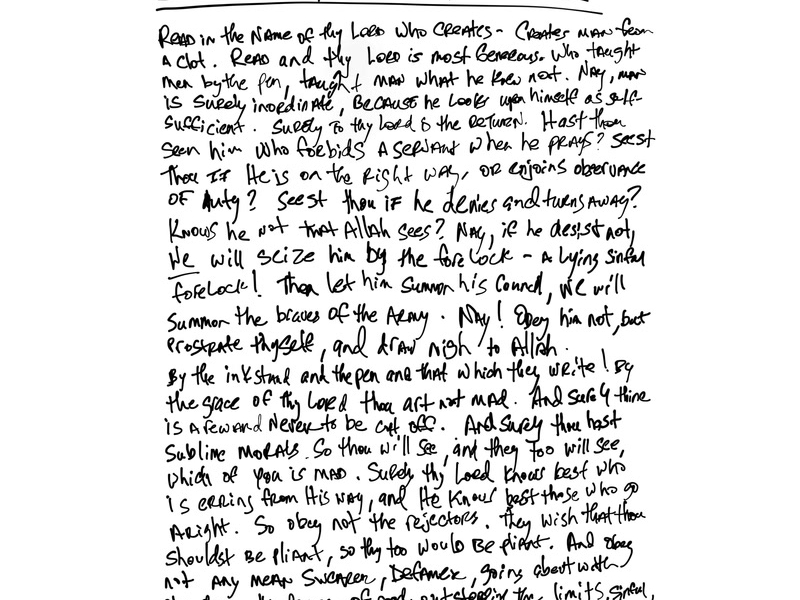 READ in the NAME of thy LORD WHO CREATES - CREATES MAN from
A Clot. READ and thy LORD is most Generous. Who taught
men by the pen, taught MAN what he knew not. NAy, man
is surely inordinate, BECAUSE he Looks upon himself as self-
sufficient. Surely to thy Lord is the RETURN. Hast thou
seen him Who forbids A SERVANT when he prays? SeesT
Thou IF He is on the Right WAy, OR enjoins observance
OF duty? SeesT thou iF he denies and turns AWAy?
KNOWS he NOT that AllAh sees? NAy, if he desist not,
We will seize him by the foreLock - A Lying sinful
foreLock! Then let him Summon his Council, WE will
Summon the braves of the ARMy. NAy! Obey him not, but
PROSTRATE thyself, and draw nigh to AllAh.
By the inkstand and the pen and that which they WRITE! By
the grace of thy LORD thou art not MAD. And surely thine
is A reward Never to be cut off. And surely thou hast
Sublime MORALS. So thou will see, and they too will see,
Which of you is MAD. Surely thy Lord Knows best who
is erring from His WAy, and He Knows best those who go
ARight. So obey not the rejectors. They wish that thou
shouldst BE pliANT, so thy too would BE pliANT. And obey
not Any MEAN SWEARER, DefAMER, going about with
outstepping the limits, sinful,